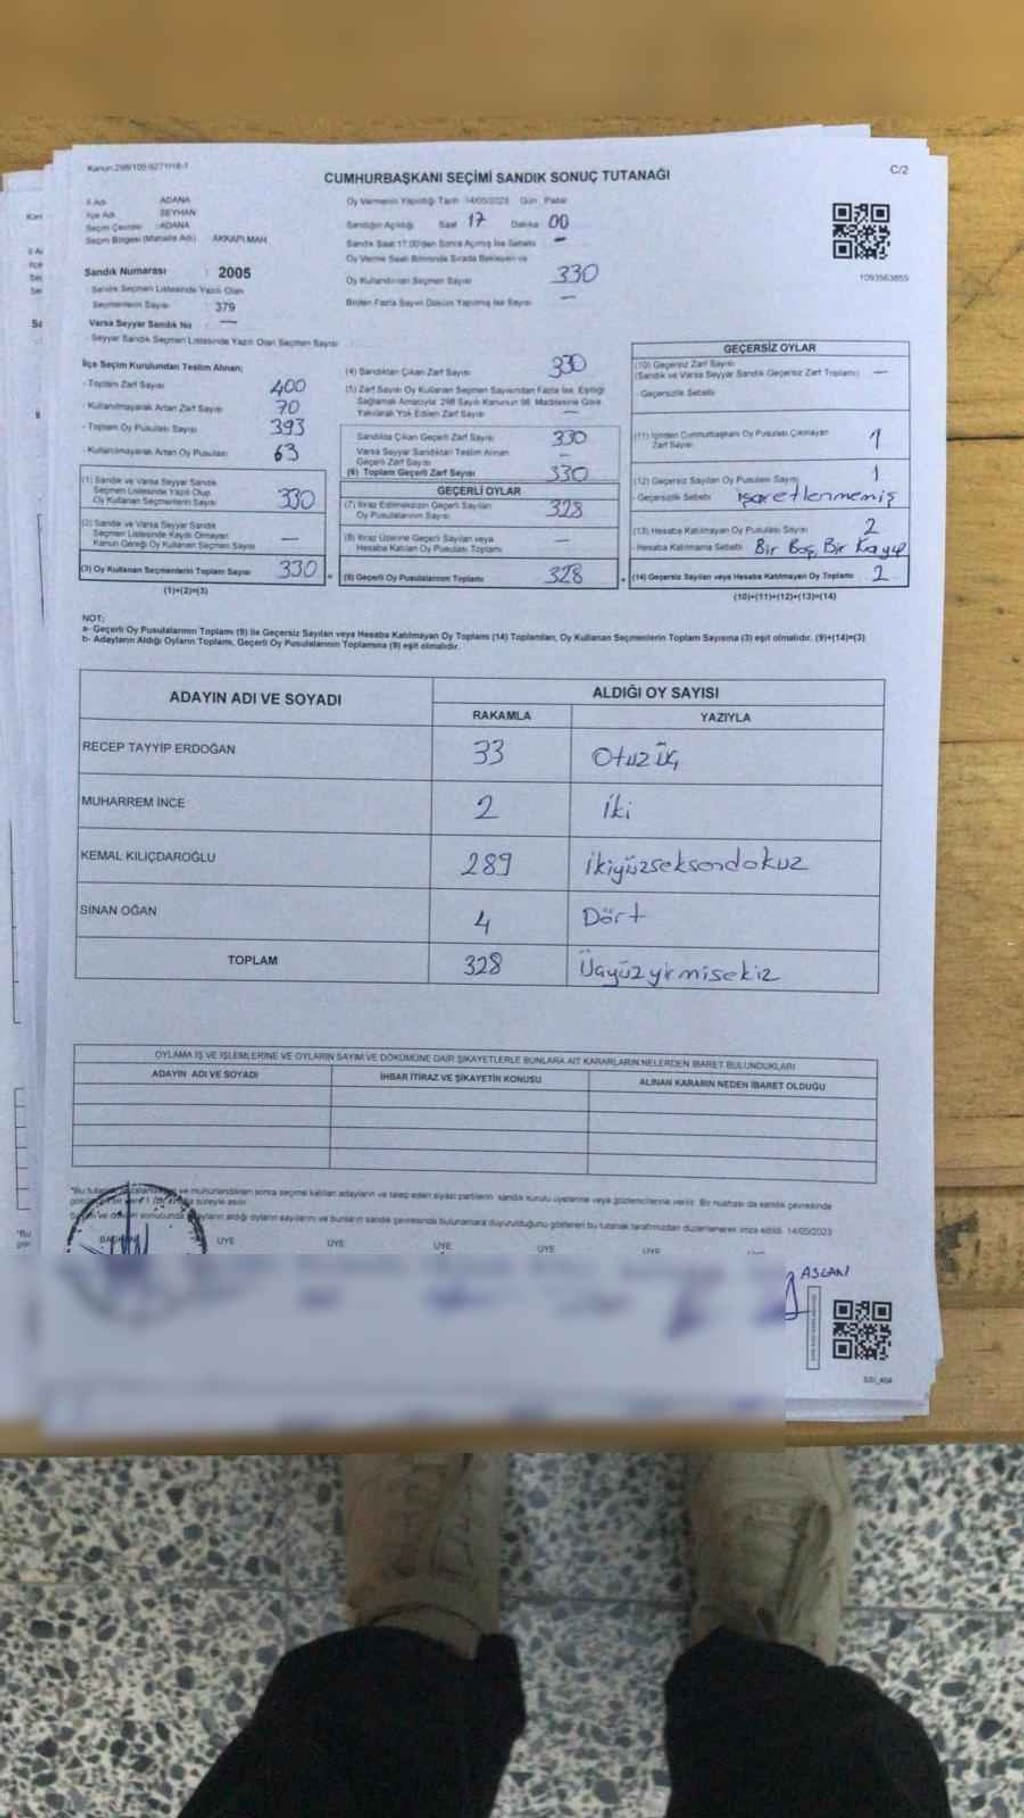 CUMHURBAŞKANI SEÇİMİ SANDIK SONUÇ TUTANAĞI
C/2
İl Adı ADANA
İlçe Adı SEYHAN
Seçim Çevresi : ADANA
Seçim Bölgesi (Mahalle Adı) AKKAPI MAH
Sandık Numarası : 2005
Sandık Seçmen Listesinde Yazılı Olan
Seçmenlerin Sayısı 379
Varsa Seyyar Sandık No —
Seyyar Sandık Seçmen Listesinde Yazılı Olan Seçmen Sayısı
Oy Vermenin Yapıldığı Tarih 14/05/2023 Gün Pazar
Sandığın Açıldığı Saat 17 Dakika 00
Sandık Saat 17.00'den Sonra Açılmış İse Sebebi —
Oy Verme Saati Bitiminde Sırada Bekleyen ve
Oy Kullandırılan Seçmen Sayısı 330
Birden Fazla Sayım Döküm Yapılmış İse Sayısı —
1093563855
İlçe Seçim Kurulundan Teslim Alınan;
- Toplam Zarf Sayısı 400
- Kullanılmayarak Artan Zarf Sayısı 70
- Toplam Oy Pusulası Sayısı 393
- Kullanılmayarak Artan Oy Pusulası 63
(1) Sandık ve Varsa Seyyar Sandık
Seçmen Listesinde Yazılı Olup
Oy Kullanan Seçmenlerin Sayısı 330
(2) Sandık ve Varsa Seyyar Sandık
Seçmen Listesinde Kaydı Olmayan
Kanun Gereği Oy Kullanan Seçmen Sayısı —
(3) Oy Kullanan Seçmenlerin Toplam Sayısı 330
(1)+(2)=(3)
(4) Sandıktan Çıkan Zarf Sayısı 330
(5) Zarf Sayısı Oy Kullanan Seçmen Sayısından Fazla İse, Eşitliği
Sağlamak Amacıyla 298 Sayılı Kanunun 98. Maddesine Göre
Yakılarak Yok Edilen Zarf Sayısı —
Sandıkta Çıkan Geçerli Zarf Sayısı 330
Varsa Seyyar Sandıktan Teslim Alınan
Geçerli Zarf Sayısı —
(6) Toplam Geçerli Zarf Sayısı 330
GEÇERLİ OYLAR
(7) İtiraz Edilmeksizin Geçerli Sayılan
Oy Pusulalarının Sayısı 328
(8) İtiraz Üzerine Geçerli Sayılan veya
Hesaba Katılan Oy Pusulası Toplamı —
(9) Geçerli Oy Pusulalarının Toplamı 328
GEÇERSİZ OYLAR
(10) Geçersiz Zarf Sayısı
(Sandık ve Varsa Seyyar Sandık Geçersiz Zarf Toplamı) —
- Geçersizlik Sebebi
(11) İçinden Cumhurbaşkanı Oy Pusulası Çıkmayan
Zarf Sayısı 1
(12) Geçersiz Sayılan Oy Pusulası Sayısı 1
- Geçersizlik Sebebi işaretlenmemiş
(13) Hesaba Katılmayan Oy Pusulası Sayısı 2
- Hesaba Katılmama Sebebi Bir Boş, Bir Kayıp
(14) Geçersiz Sayılan veya Hesaba Katılmayan Oy Toplamı 2
(10)+(11)+(12)+(13)=(14)
NOT:
a- Geçerli Oy Pusulalarının Toplamı (9) ile Geçersiz Sayılan veya Hesaba Katılmayan Oy Toplamı (14) Toplamları, Oy Kullanan Seçmenlerin Toplam Sayısına (3) eşit olmalıdır. (9)+(14)=(3)
b- Adayların Aldığı Oyların Toplamı, Geçerli Oy Pusulalarının Toplamına (9) eşit olmalıdır.
ADAYIN ADI VE SOYADI ALDIĞI OY SAYISI
RAKAMLA YAZIYLA
RECEP TAYYİP ERDOĞAN 33 Otuz üç
MUHARREM İNCE 2 İki
KEMAL KILIÇDAROĞLU 289 İkiyüzseksendokuz
SİNAN OĞAN 4 Dört
TOPLAM 328 Üçyüzyirmisekiz
OYLAMA İŞ VE İŞLEMLERİNE VE OYLARIN SAYIM VE DÖKÜMÜNE DAİR ŞİKAYETLERLE BUNLARA AİT KARARLARIN NELERDEN İBARET BULUNDUKLARI
ADAYIN ADI VE SOYADI İHBAR İTİRAZ VE ŞİKAYETİN KONUSU ALINAN KARARIN NEDEN İBARET OLDUĞU
ve mühürlendikten sonra seçime katılan adayların ve talep eden siyasi partilerin sandık kurulu üyelerine veya gözlemcilerine verilir. Bir nüshası da sandık çevresinde
süreyle asılır.
aldığı oyların sayılarını ve bunların sandık çevresinde bulunanlara duyurulduğunu gösteren bu tutanak tarafımızdan düzenlenerek imza edildi. 14/05/2023
BAŞKAN ÜYE ÜYE ÜYE ÜYE ÜYE
ASLANI